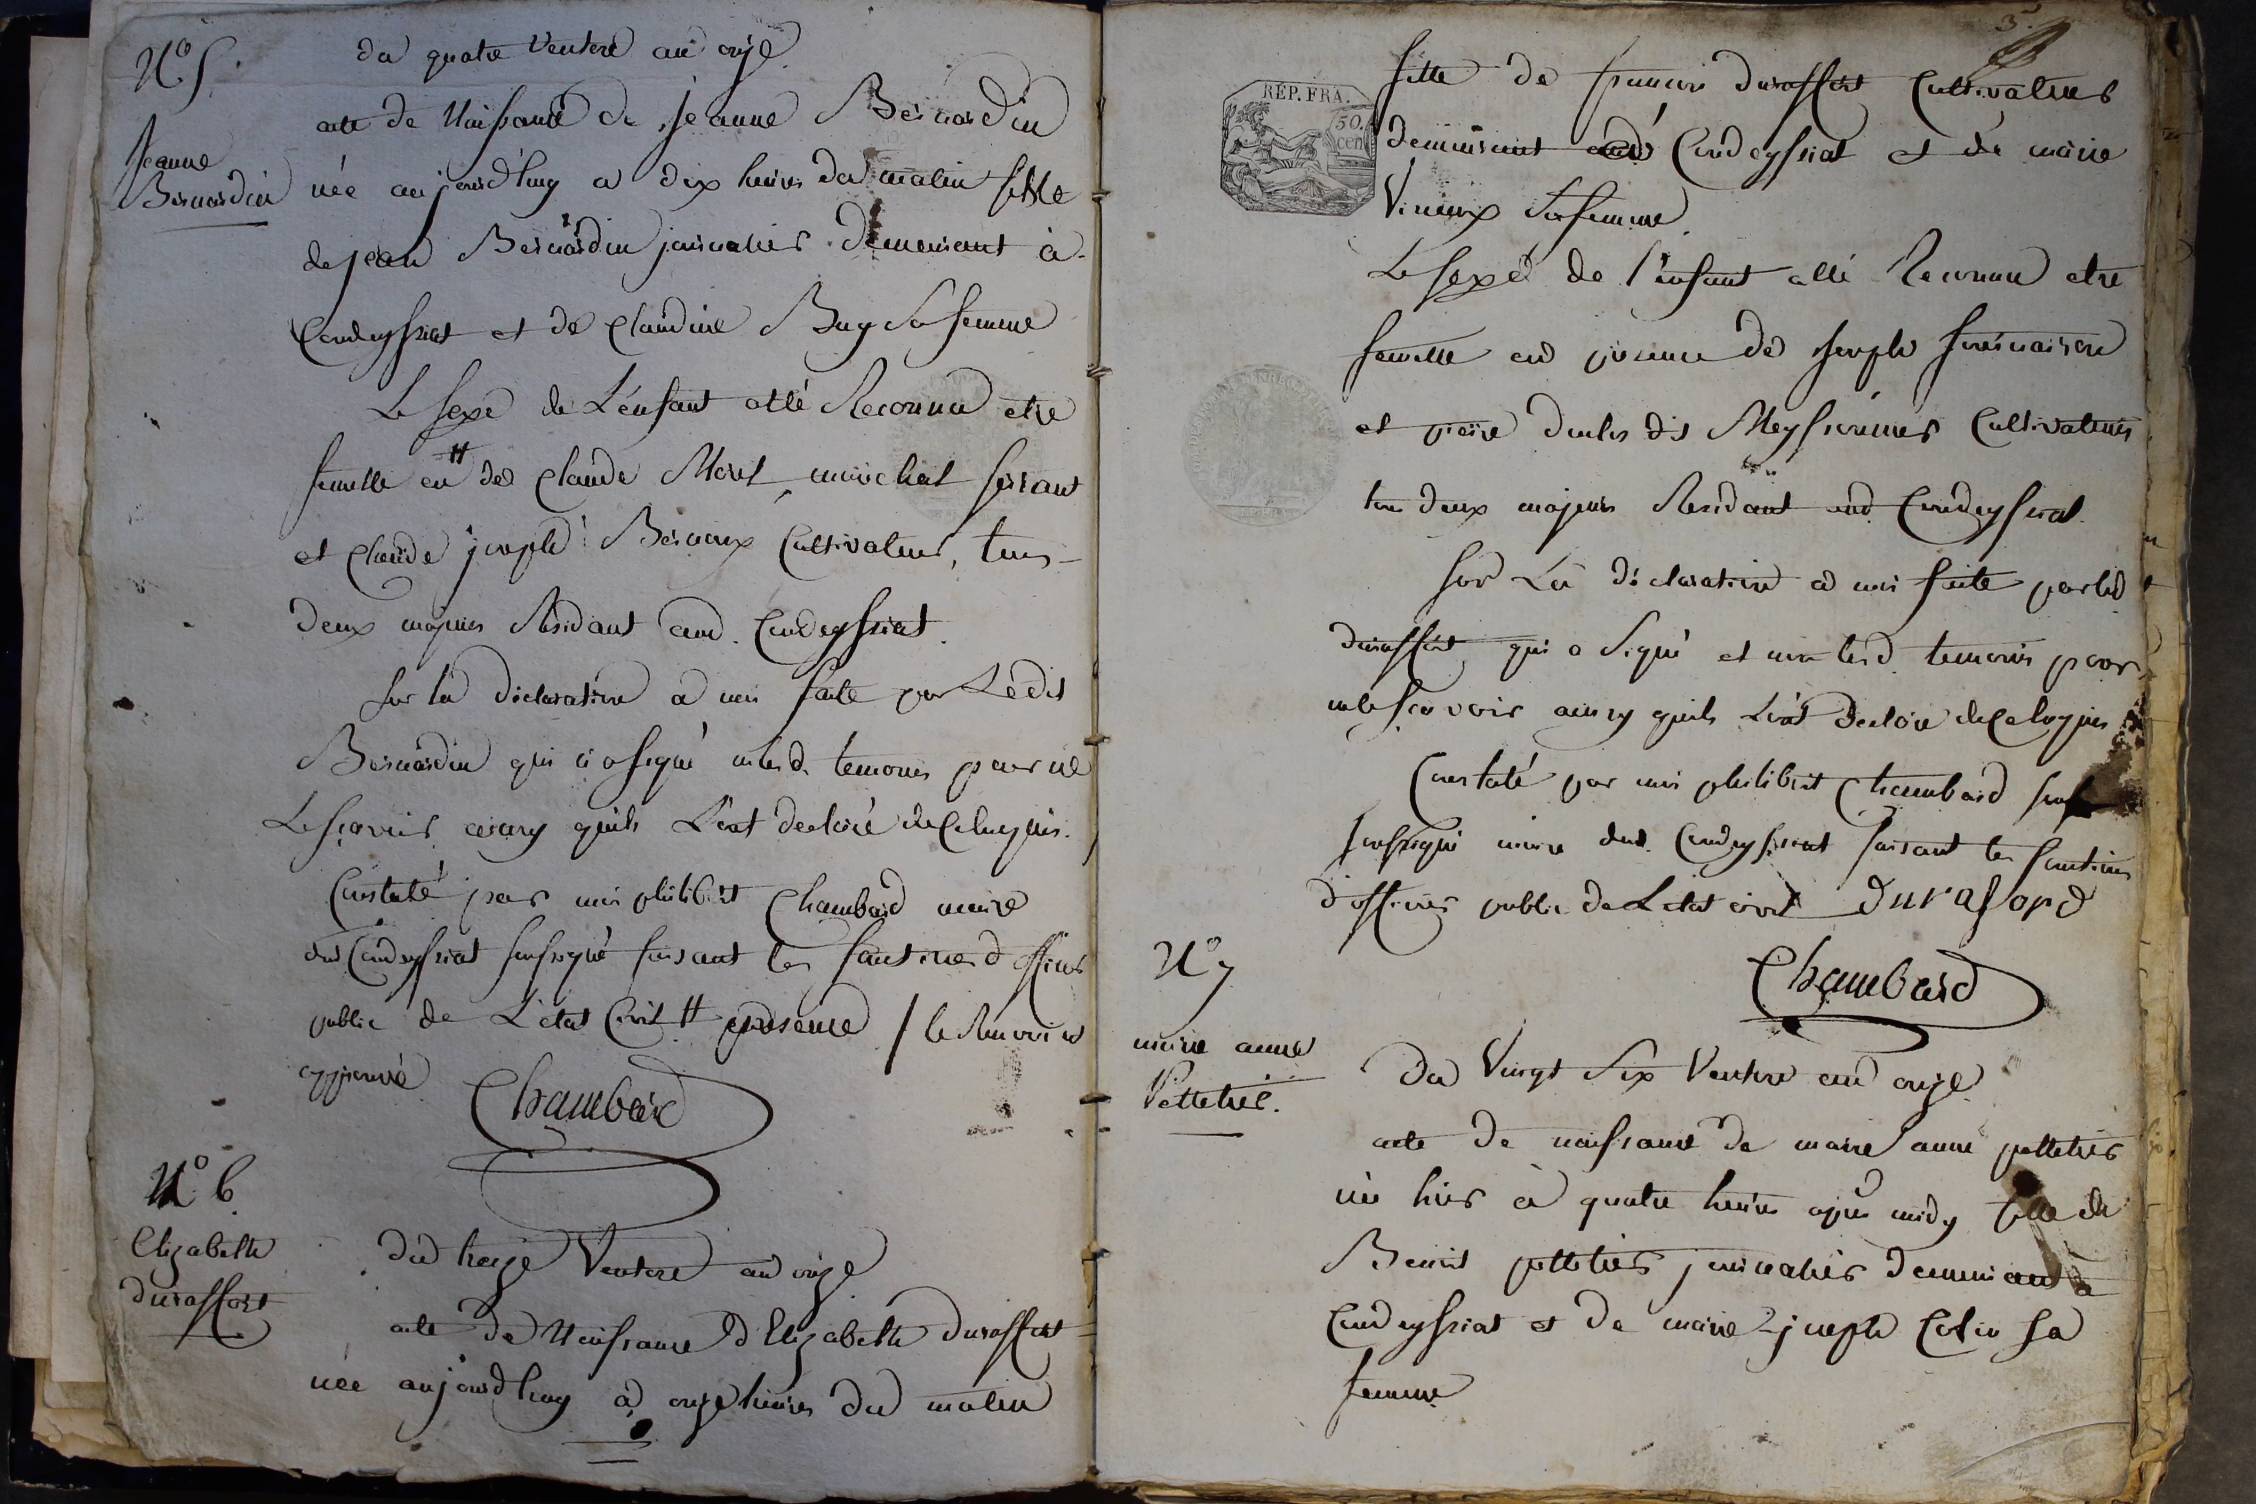 N° 5.
Jeanne
Bernardin
du quatre Ventose an onze
acte de Naissance de Jeanne Bernardin
née aujourd'huy a dix heures du matin fille
de jean Bernardin journalier demeurant à
Condeyssiat et de Claudine Buy Sa femme
Le sexe de L'enfant a été Reconnu etre
femelle en # de Claude Morel marechal ferrant
et Claude joseph Bernoux Cultivateur, tous
deux majeurs Résidant aud. Condeyssiat.
Sur la declaration a moi faite par Ledit
Bernardin qui a signé lesd. temoins pour ne
Le sçavoir ainsy quils L'ont declaré de Ce Requis.
Constaté par moi philibert Chambard maire
dud Condeyssiat soussigné faisant les fonctions d'officier
public de L'état Civil # presence / le Renvoi
approuvé
Chambard
N° 6.
Elizabeth
duraffort
du treize Ventose an onze
acte de Naissance d'Elizabeth duraffort
née aujourd'huy a onze heures du matin
3.
REP. FRA.
50.
cen
fille de francois duraffort Cultivateur
demeurant aud Condeyssiat et de marie
Sa femme.
Le sexe de l'enfant a été Reconnu etre
femelle en presence de Joseph
et pierre Cultivateurs
tous deux majeurs Residant aud Condeyssiat.
Sur La declaration a moi faite par led
duraffort qui a Signé et non lesd temoins pour
ne le sçavoir ainsy quils L'ont declaré de Ce Requis
Constaté par moi philibert Chambard
soussigné maire dud. Condeyssiat faisant les fonctions
d'officier public de L'état civil duraford
Chambard
N° 7
marie anne
Pelletier.
du Vingt Six Ventose an onze
acte de naissance de marie anne pelletier
née hier à quatre heures apres midy fille de
Benoit pelletier journalier demeurant à
Condeyssiat et de marie joseph Colin sa
femme